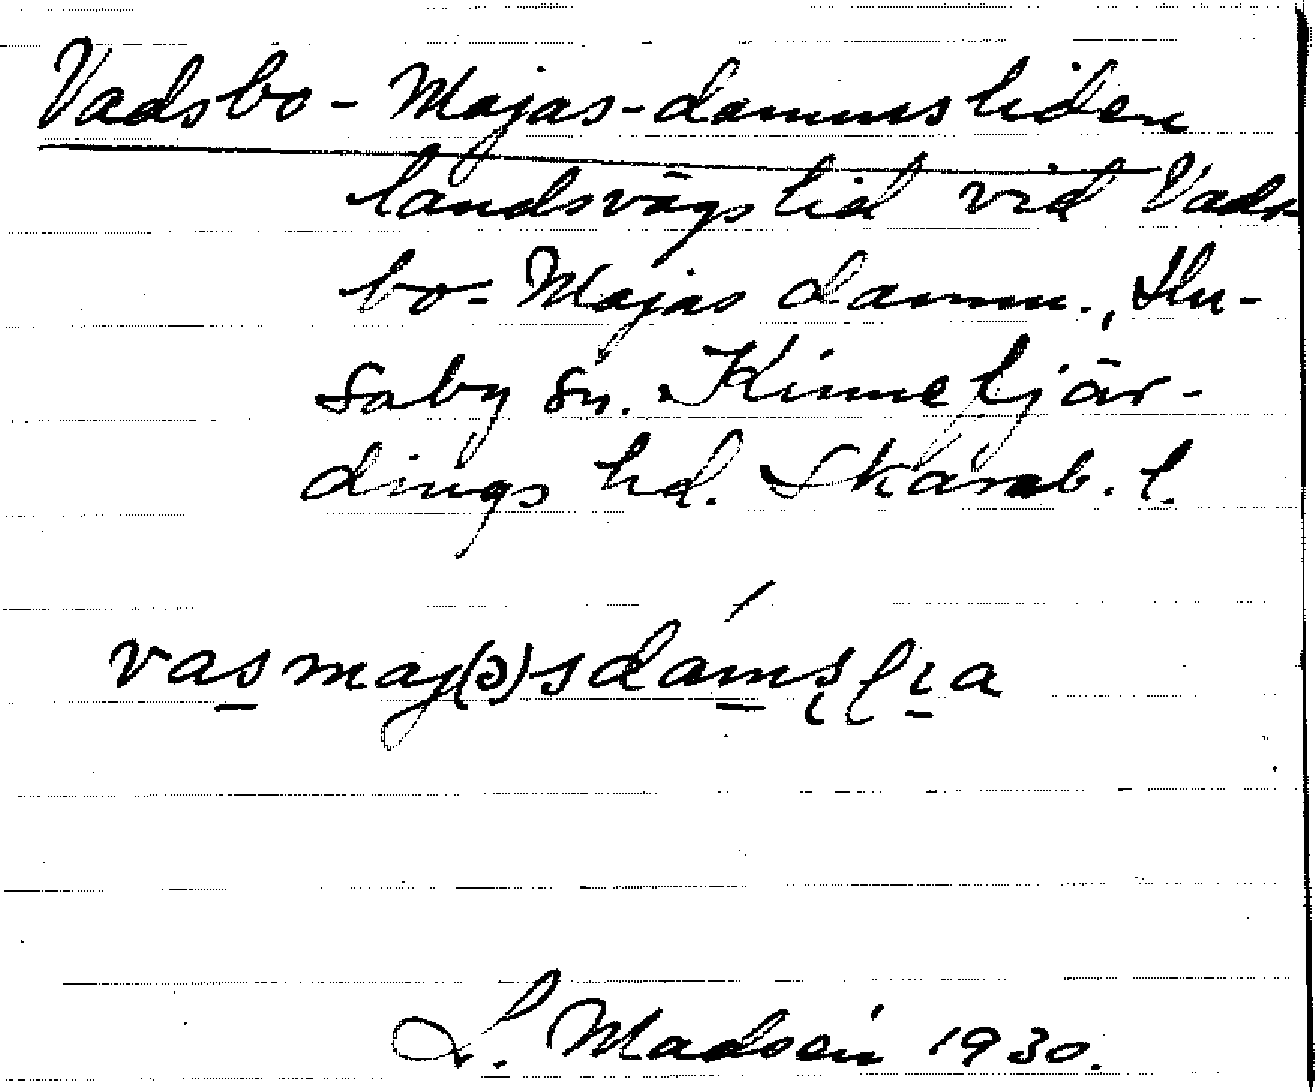 Vadsbo-Majas-dammsliden
landsvägslid vid Vads
bo-Majas damm., Hu-
saby sn. Kinnefjär-
dings hd. Skarab. l.
vasmaj(ə)sdámslia
L. Madsén 1930.